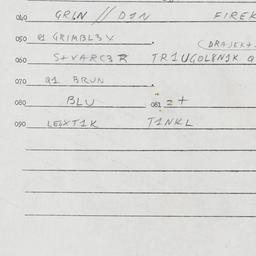 040 GRLN // D1N FIREK
050 @1 GRIMBL3 V.
(DRAJEKT.
060 S+VARC3R TR1UGOL8N1K
070 Q1 BRUN.
080 BLU 081 = +
090 LEQXT1K T1NKL